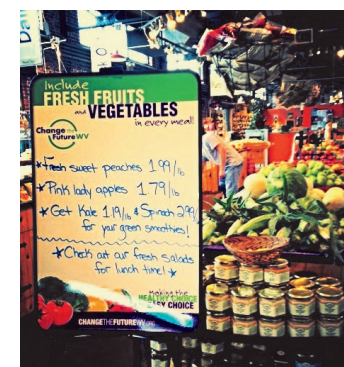 Include
FRESH FRUITS
and VEGETABLES
in every meal!
Change the
Future WV
★Fresh sweet peaches 1.99/lb
★Pink lady apples 1.79/lb
★Get Kale 1.19/lb & Spinach 2.99/
for your green smoothies!
★Check out our fresh salads
for lunch time! ★
Making the
HEALTHY CHOICE
the EASY CHOICE
CHANGETHEFUTUREWV.ORG